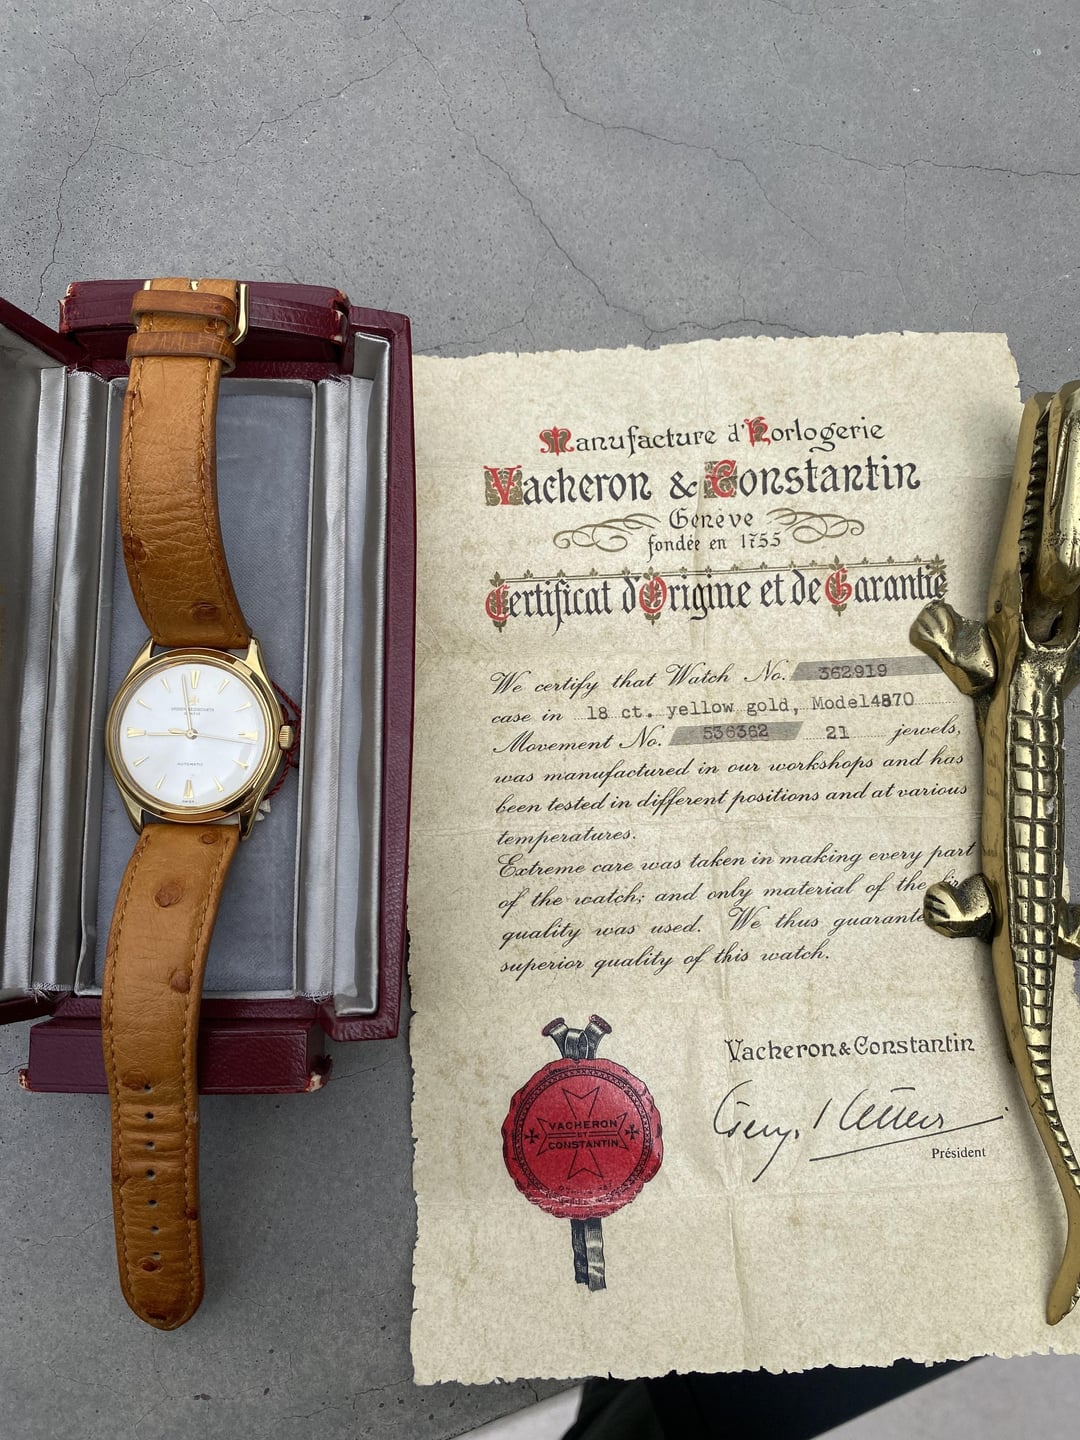 VACHERON & CONSTANTIN
GENÈVE
AUTOMATIC
SWISS
Manufacture d'Horlogerie
Vacheron & Constantin
Genève
fondée en 1755
Certificat d'Origine et de Garantie
We certify that Watch No. 362919
case in 18 ct. yellow gold, Model4870
Movement No. 536362 21 jewels,
was manufactured in our workshops and has
been tested in different positions and at various
temperatures.
Extreme care was taken in making every part
of the watch; and only material of the fir
quality was used. We thus guarante
superior quality of this watch.
Vacheron&Constantin
Président
VACHERON
ET
CONSTANTIN